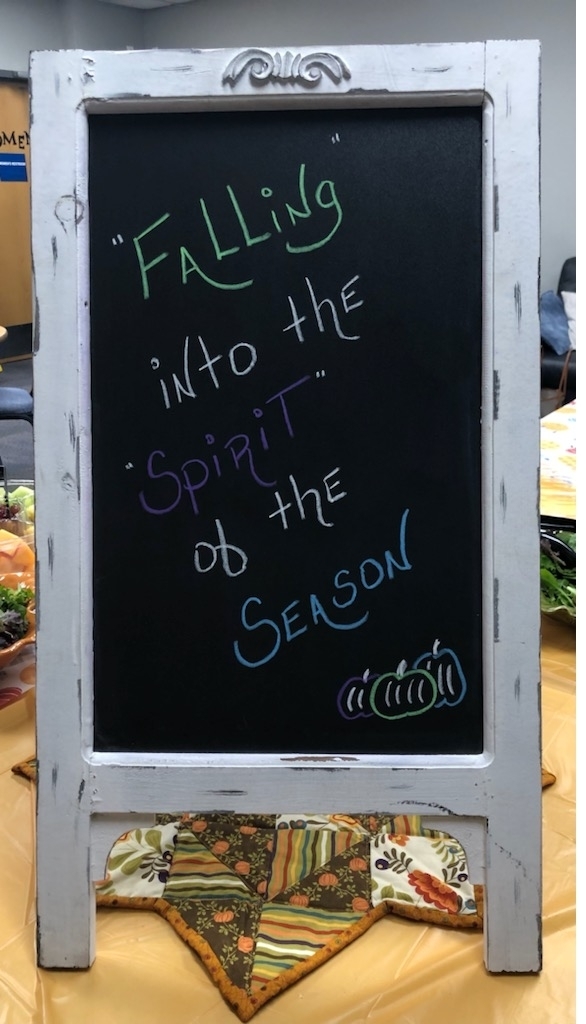 "FALLiNg"
iNto the
"SpiRiT"
of the
SEASON